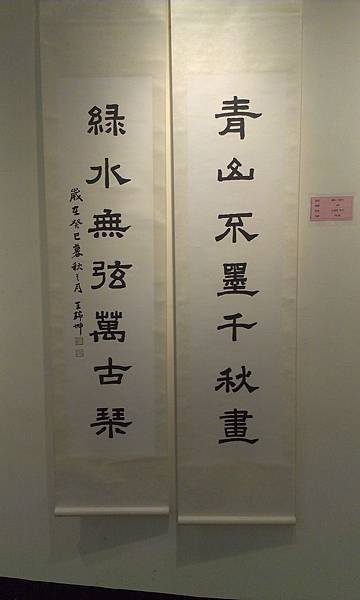 青山不墨千秋畫
綠水無弦萬古琴
歲在癸巳暮秋之月